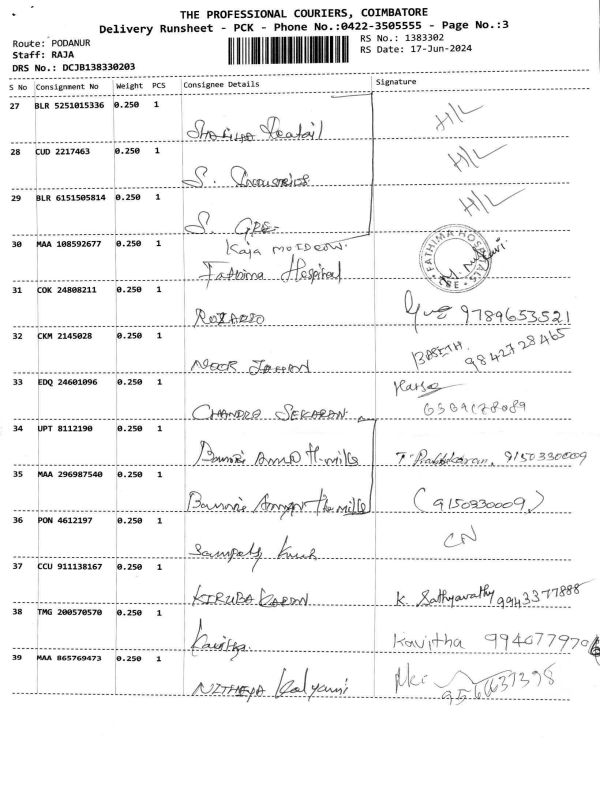 THE PROFESSIONAL COURIERS, COIMBATORE
Delivery Runsheet - PCK - Phone No.:0422-3505555 - Page No.:3
Route: PODANUR
RS No.: 1383302
Staff: RAJA
RS Date: 17-Jun-2024
DRS No.: DCJB138330203
S No Consignment No Weight PCS Consignee Details Signature
27 BLR 5251015336 0.250 1
H/L
28 CUD 2217463 0.250 1
H/L
S. Industries
29 BLR 6151505814 0.250 1
H/L
S.
30 MAA 108592677 0.250 1
Kaja MOIDEEN.
Fathima Hospital
FATHIMA HOSPITALS
CBE
31 COK 24808211 0.250 1
ROZARIO
9789653521
32 CKM 2145028 0.250 1
BASETH.
9842728465
NOOR JAHAN
33 EDQ 24601096 0.250 1
CHANDRA SEKARAN
34 UPT 8112190 0.250 1
9150330009
35 MAA 296987540 0.250 1
(9150330009)
36 PON 4612197 0.250 1
CN
37 CCU 911138167 0.250 1
KIRUBAKARAN
K Sathyavathy 9943377888
38 TMG 200570570 0.250 1
Kavitha
Kavitha 9940779706
39 MAA 865769473 0.250 1
NITHEYA Kalyani